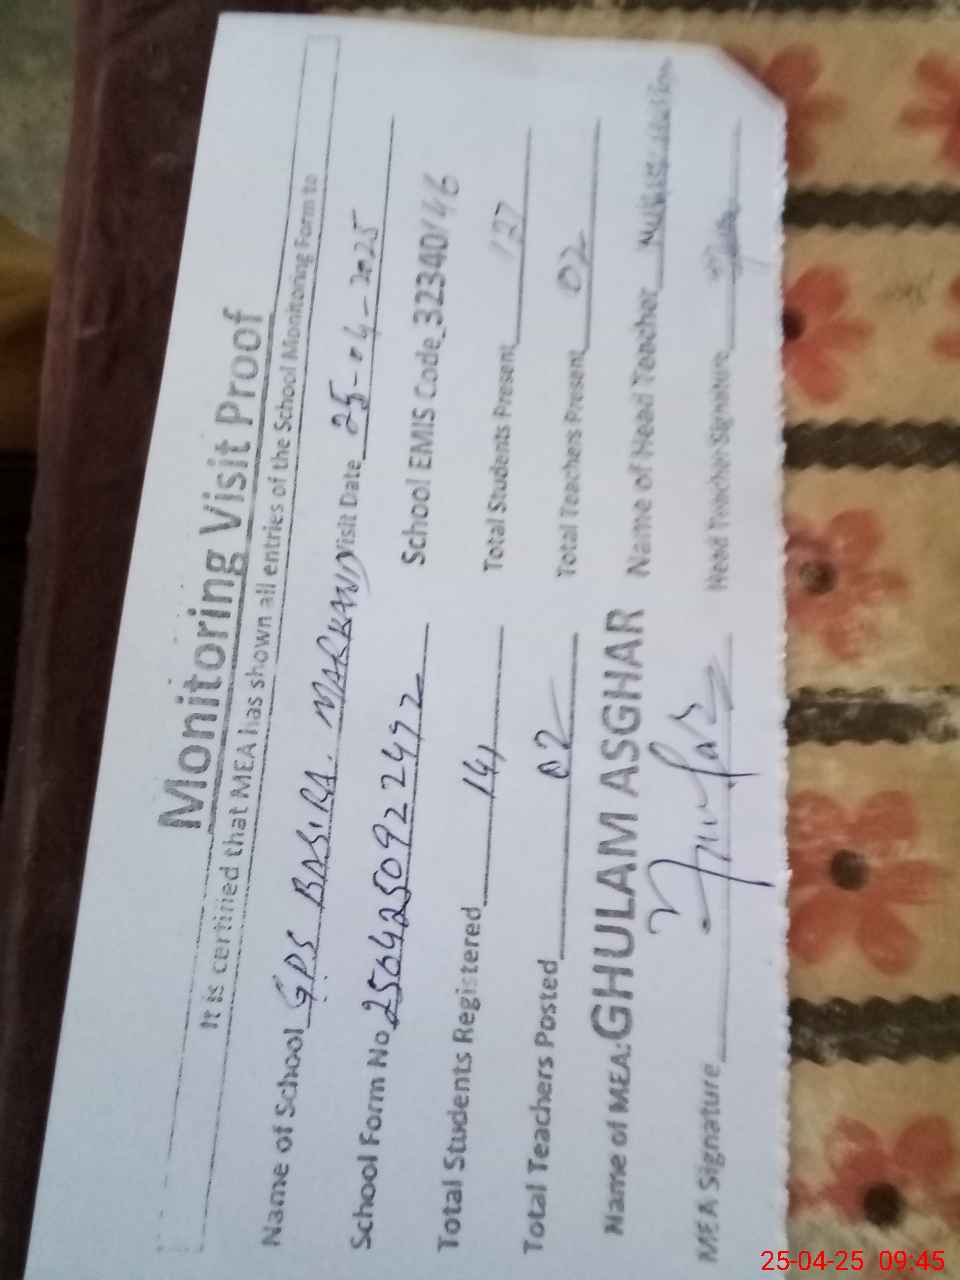 Monitoring Visit Proof
It is certified that MEA has shown all entries of the School Monitoring Form to
Name of School GPS BASIRA. MARKAND Visit Date 25-04-2025
School Form No 2504250922492 School EMIS Code 32340146
Total Students Registered 141 Total Students Present 127
Total Teachers Posted 02 Total Teachers Present 02
Name of MEA: GHULAM ASGHAR Name of Head Teacher
MEA Signature Head Teacher Signature
25-04-25 09:45